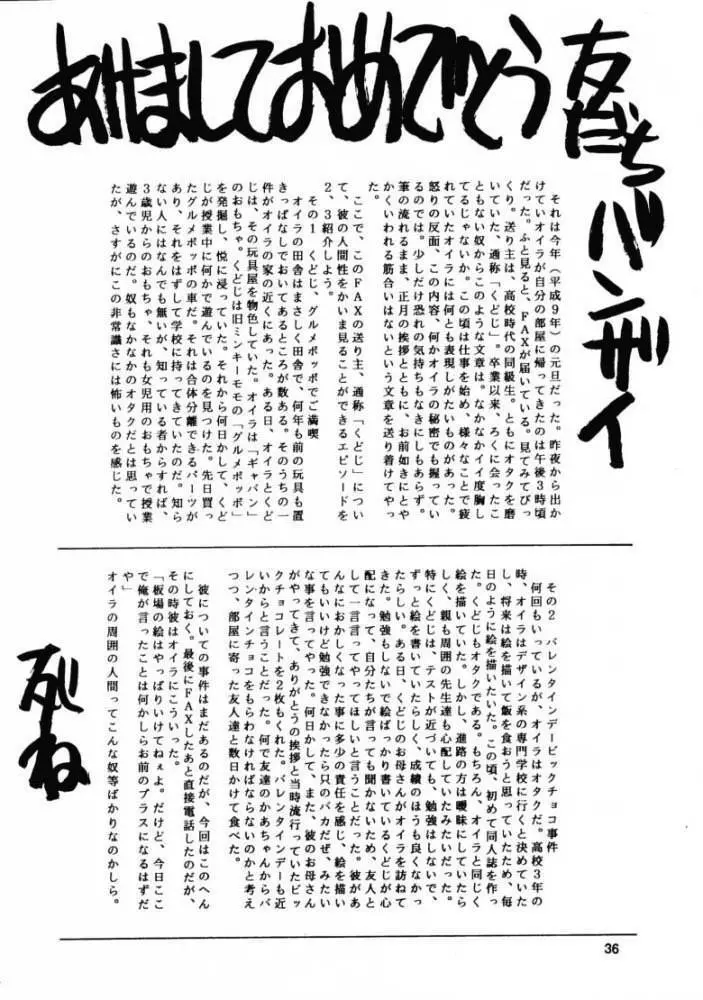 友だちバンザイ
あけましておめでとう
それは今年(平成9年)の元旦だった。昨夜から出か
けていたオイラが自分の部屋に帰ってきたのは午後3時頃
だった。ふと見ると、FAXが届いている。見てみてびっ
くり。送り主は、高校時代の同級生。ともにオタクを磨
いていた、通称「くどじ」。卒業以来、ろくに会ったこ
ともない奴からこのような文章は。なかなかイイ度胸し
てるじゃないか。この頃は仕事を始め、様々なことで疲
れていたオイラには何とも表現しがたいものがあった。
怒りの反面、この内容、何かオイラの秘密でも握ってい
るのでは。少しだけ恐れの気持ちもなきにしもあらず。
筆の流れるまま、正月の挨拶とともに、お前如きにとや
かくいわれる筋合いはないという文章を送り着けてやっ
た。
ここで、このFAXの送り主、通称「くどじ」につい
て、彼の人間性をかいま見ることができるエピソードを
2、3紹介しよう。
その1 くどじ、グルメポッポでご満喫
オイラの田舎はまさしく田舎で、何年も前の玩具も置
きっぱなしでおいてあるところが数ある。そのうちの一
件がオイラの家の近くにあった。ある日、オイラとくど
じは、その玩具屋を物色していた。オイラは「ギャバン」
のおもちゃ。くどじは旧ミンキーモモの「グルメポッポ」
を発掘し、悦に浸っていた。それから何日かして、くど
じが授業中に何かで遊んでいるのを見つけた。先日買っ
たグルメポッポの車だ。それは合体分離できるパーツが
あり、それをはずして学校に持ってきていたのだ。知ら
ない人にはなんでも無いが、知っている者からすれば、
3歳児からのおもちゃ、それも女児用のおもちゃで授業
遊んでいるのだ。奴もなかなかのオタクだとは思ってい
たが、さすがにこの非常識さには怖いものを感じた。
その2 バレンタインデービックチョコ事件
何回もいっているが、オイラはオタクだ。高校3年の
時、オイラはデザイン系の専門学校に行くと決めていた
し、将来は絵を描いて飯を食おうと思っていたため、毎
日のように絵を描いたいた。この頃、初めて同人誌を作っ
た。くどじもオタクである。もちろん、オイラと同じく
絵を描いていた。しかし、進路の方は曖昧にしていたら
しく、親も周囲の先生達も心配していたみたいだった。
特にくどじは、テストが近づいても、勉強はしないで、
ずっと絵を書いていたらしく、成績のほうも良くなかっ
たらしい。ある日、くどじのお母さんがオイラを訪ねて
きた。勉強もしないで絵ばっかり書いているくどじが心
配になって、自分たちが言っても聞かないため、友人と
して一言言ってやってほしいと言うことだった。彼があ
んなにおかしくなった事に多少の責任を感じ、絵を描い
てもいいけど勉強できなかったら只のバカだぜ、みたい
な事を言ってやった。何日かして、また、彼のお母さん
がやってきて、ありがとうの挨拶と当時流行っていたビッ
クチョコレートを2枚もくれた。バレンタインデーも近
いからと言うことだった。何で友達のかあちゃんからバ
レンタインチョコをもらわなければならないのかと考え
つつ、部屋に寄った友人達と数日かけて食べた。
彼についての事件はまだあるのだが、今回はこのへん
にしておく。最後にFAXしたあと直接電話したのだが、
その時彼はオイラにこういった。
「板場の絵はやっぱりいけてねぇよ。だけど、今日ここ
で俺が言ったことは何かしらお前のプラスになるはずだ
や」
オイラの周囲の人間ってこんな奴等ばかりなのかしら。
死ね
36